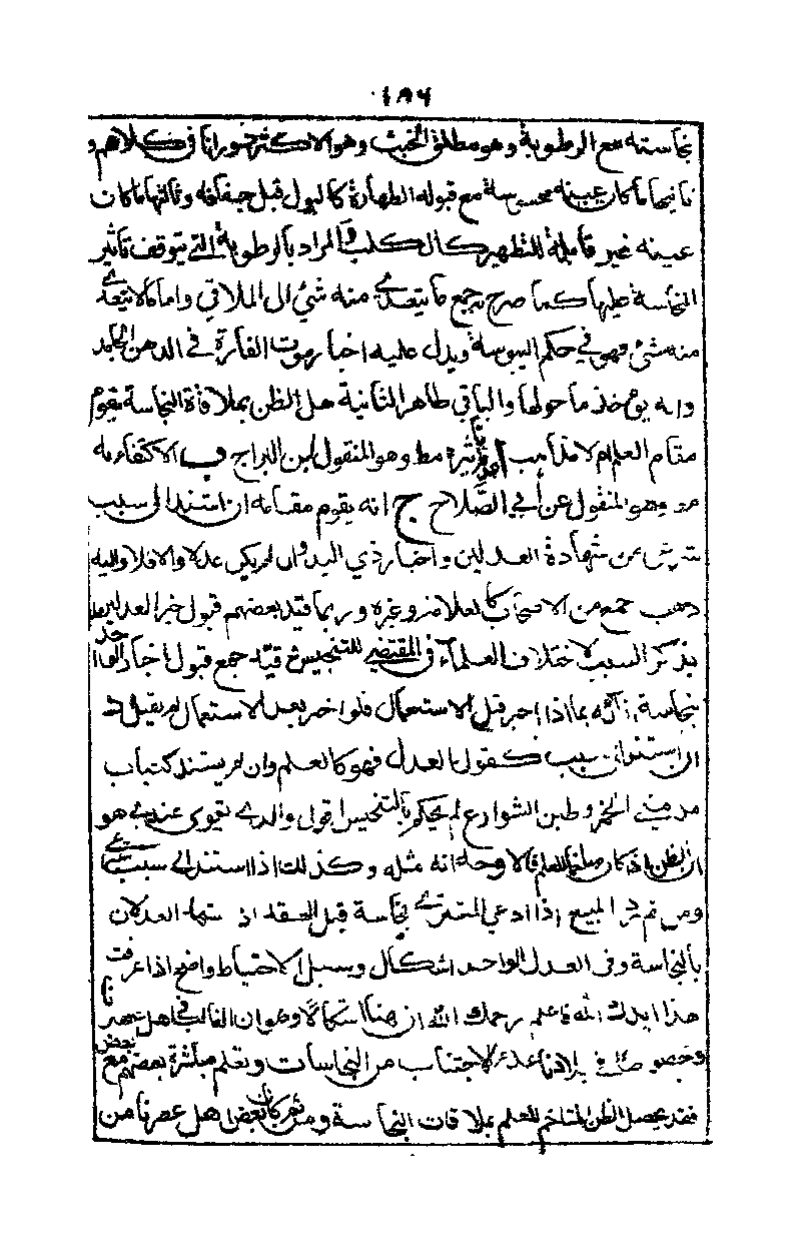 ١٨٦
نجاسته مع الرطوبة وهو مطلق الخبث وهو الاكثر دورانا في كلامهم و
ثانيها ما كان عينه محسوسة مع قبوله الطهارة كالبول قبل جفافه وثالثها ما كان
عينه غير قابلة للتطهير كالكلب والمراد بالرطوبة التي يتوقف تاثير
النجاسة عليها كما صرح به جمع ما يتعدى منه شيء الى الملاقي واما ما لا يتعدى
منه شئ فهو في حكم اليبوسة ويدل عليه اخبار موت الفارة في الدهن الجامد
وانه يؤخذ ما حولها والباقي طاهر الثانية هل الظن بملاقاة النجاسة يقوم
مقام العلم ام لا مذاهب تاثيره مط وهو المنقول ابن البراج ب الاكتفاء به
وهو المنقول عن أبي الصّلاح ج انه يقوم مقامه ان استند الى سبب
شرعي من شهادة العدلين واخبار ذي اليد وان لم يكن عدلا والا فلا واليه
ذهب جمع من الاصحاب كالعلامة وغيره وربما قيد بعضهم قبول خبر العدلين
بذكر السبب لاختلاف العلماء في المقتضي للتنجيس وقيد جمع قبول اخبار
بنجاسة انائه بما اذا اخبر قبل الاستعمال فلو اخبر بعد الاستعمال لم يقبل
ان استند الى سبب كقول العدل فهو كالعلم وان لم يستند كثياب
مدمني الخمر وطين الشوارع لم يحكم بالتنجيس اقول والذي يقوى عندي هو
ان الظن اذا كان متاخما للعلم فالاوجه انه مثله وكذلك اذا استند الى سبب شرعي
ومن ثم ترد المبيع اذا ادعى المشتري نجاسة قبل العقد اذ شهد العدلان
بالنجاسة وفي العدل الواحد اشكال وسبيل الاحتياط واضح اذا عرفت
هذا ايدك الله فاعلم رحمك الله ان هنا اشكالا وهو ان الغالب في اهل عصرنا
وخصوصا في بلادنا عدم الاجتناب من النجاسات ونعلم مباشرة بعضهم مع بعض
فقد يحصل الظن المتاخم للعلم بملاقات النجاسة ومن ثم كان بعض اهل عصرنا من